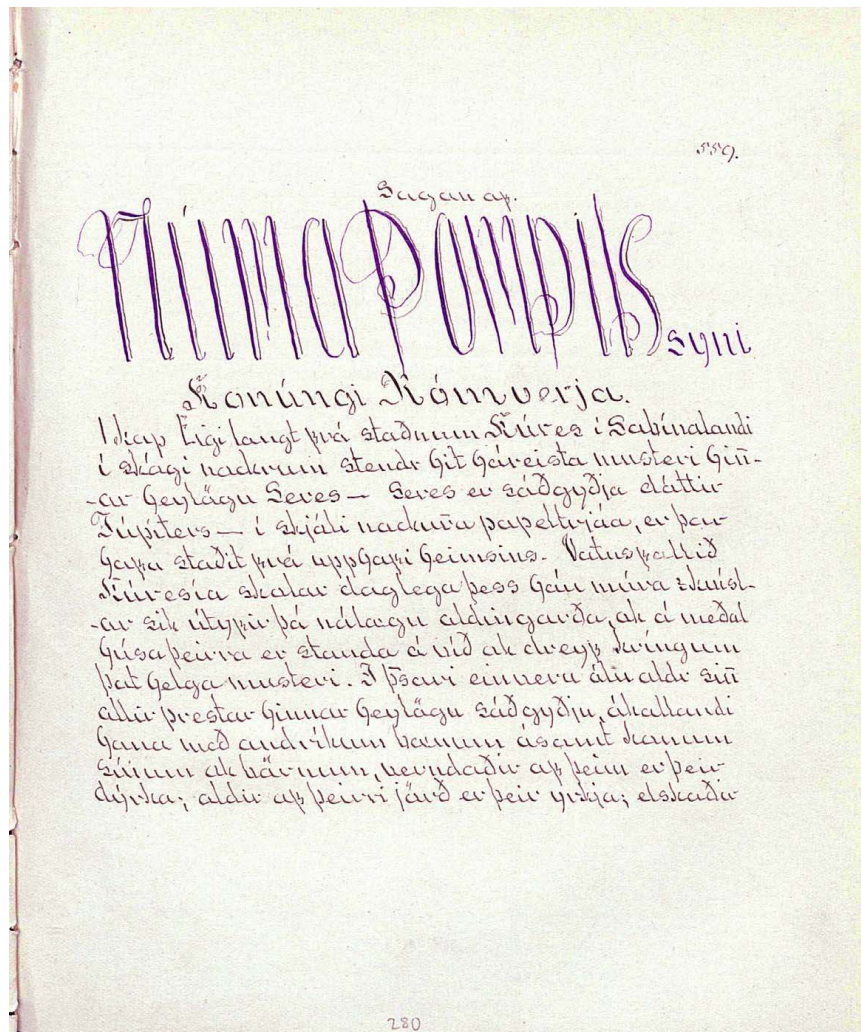 559.
Sagan af.
Núma Pompils syni
Konúngi Rómverja.
1 kap Eigi langt frá staðnum Kúres i Sabínalandi
i skógi nockrum stendr hit háreista musteri hiñ-
-ar heylögu Seres — Seres er sáðgyðja dóttir
Júpíters — i skjóli nockura papeltrjáa, er þar
hafa staðit frá upphafi heimsins. Vatnsfallið
Kúresía skolar daglega þess háu múra & kvísl-
-ar sik útyfir þá nálægu aldingarða, ok á meðal
húsa þeirra er standa á við ok dreyf kríngum
þat helga musteri. I þsari einveru ólu aldr siñ
allir prestar hinnar heylögu sáðgyðju, ákallandi
hana með andríkum bænum ásamt konum
sínum ok börnum, verndaðir af þeim er þeir
dýrka; aldir af þeirri jörð er þeir yrkja; elskaðir
280